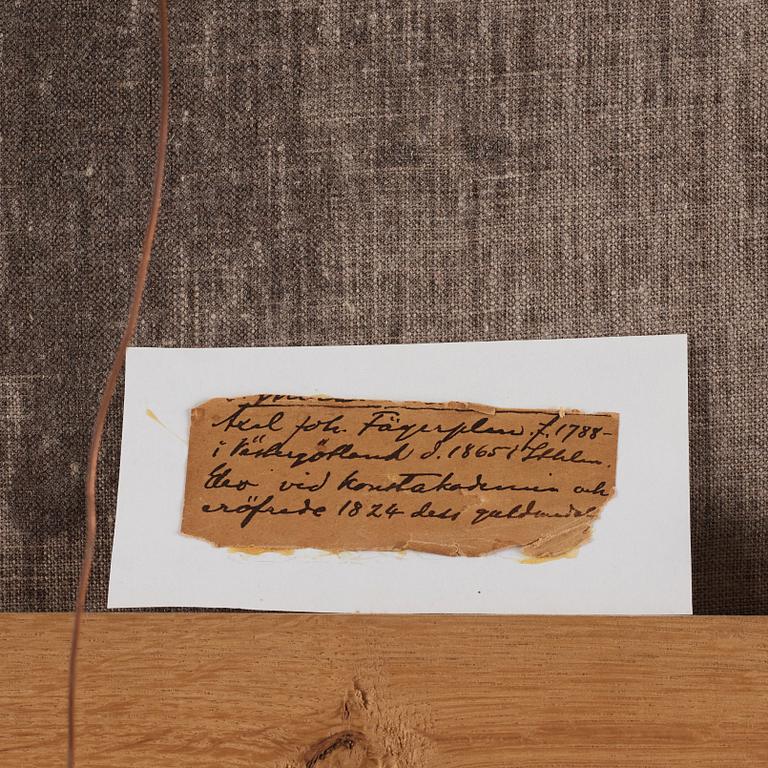 Axel Joh. Fägerplan, f. 1788-
i Västergötland d. 1865 i Sthlm.
Elev vid konstakademin och
eröfrade 1824 dess guldmedalj